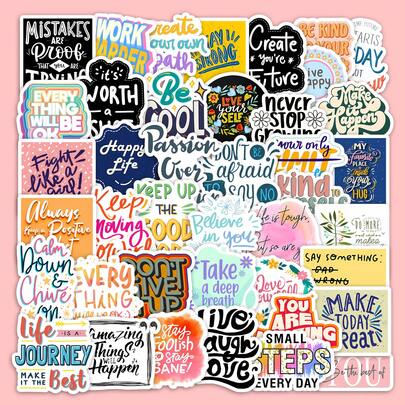 MISTAKES
ARE
PROOF
THAT YOU ARE
TRYING
WORK
HARDER
create
your own
path
STAY
STRONG
Create
You're
Future
BE KIND
live
happy
DAY
NOT
EVERY
THING
WILL BE
OK
it's
WORTH
a
Be
COOL
LOVE
YOUR
SELF
never
STOP
GROWING
Make
it
Happen
Fight
like a
girl!
Happy
Life
Passion
Over
DON'T BE
afraid
TO SAY
NO
your only
kind
MY
favorite
PLACE
inside
YOUR
HUG
Always
Keep a Positive
Keep
moving
KEEP UP
THE
GOOD
Believe
in you
life is tough
but so are
DO MORE
makes
SAY something:
SAD
WRONG
Calm
Down
&
Chive
on
EVERY
THING
DON'T
GIVE
UP
Take
a deep
breath
YOU
ARE
MAKE
TODAY
Great
life
IS A
JOURNEY
MAKE
IT THE
Best
amazing
Things
will
Happen
Stay
foolish
to stay
SANE!
Live
laugh
Love
SMALL
STEPS
EVERY DAY
YOU
Be the best of